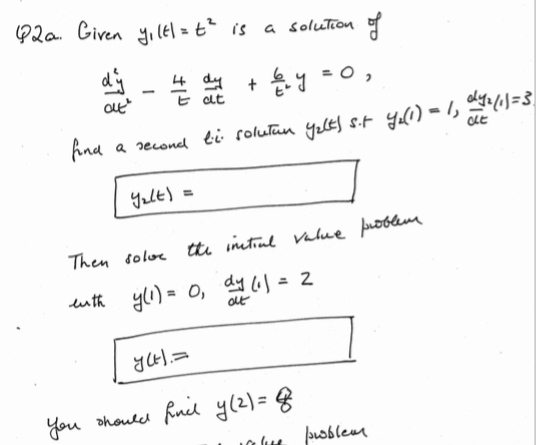 Q2a. Given y₁(t) = t² is a solution of
d²y/dt² - 4/t dy/dt + 6/t² y = 0,
find a second l.i. solution y₂(t) s.t y₂(1) = 1, dy₂/dt (1) = 3.
y₂(t) =
Then solve the initial value problem
with y(1) = 0, dy/dt (1) = 2
y(t) =
You should find y(2) = 8
value problem